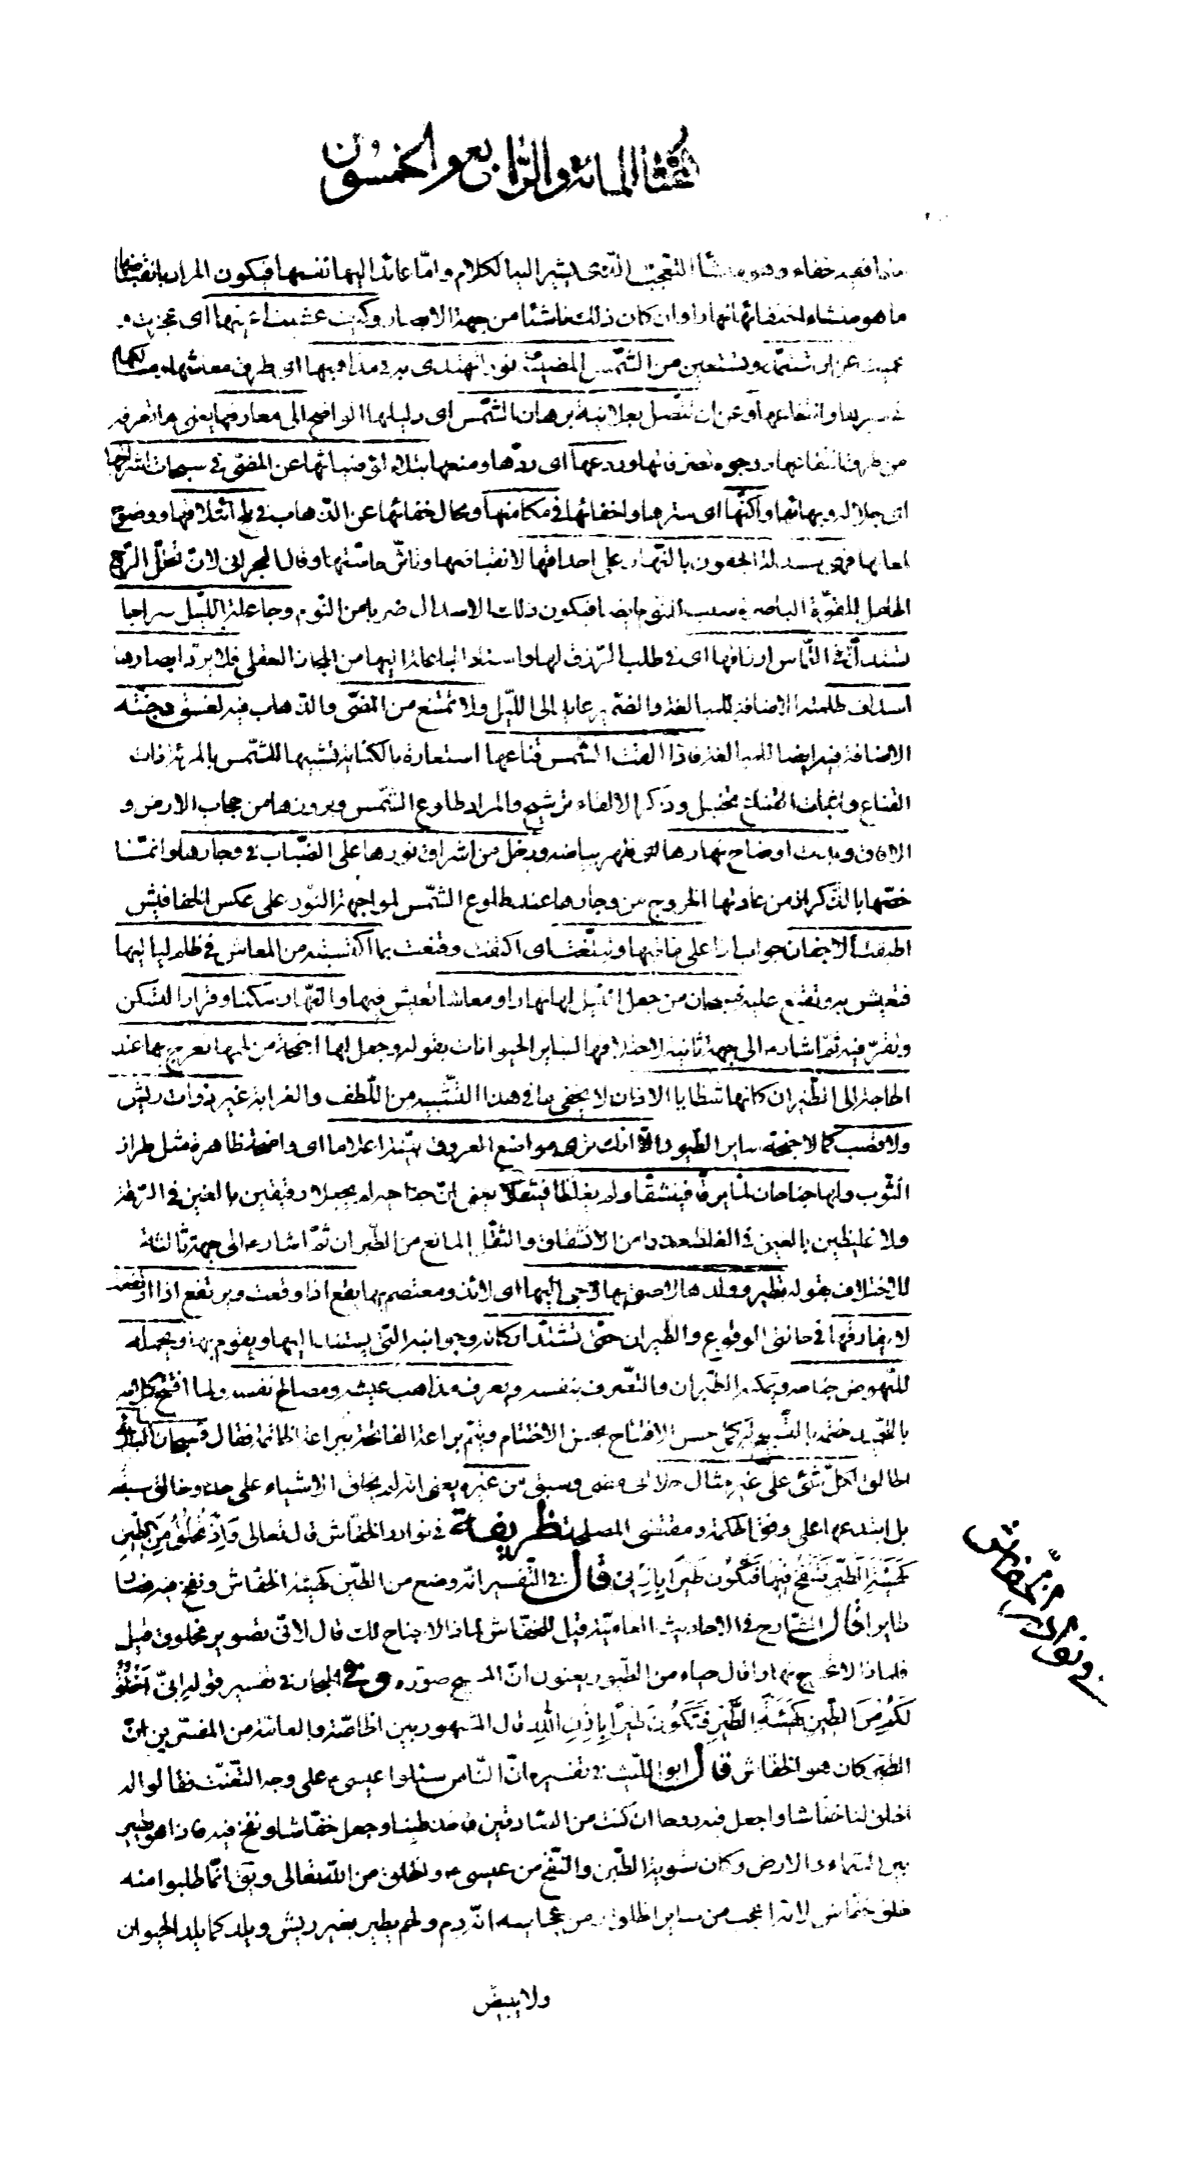 المختار المائة والرابع والخمسون
فيه خفاء وهو منشأ التعجب الذى يشير اليه الكلام واما عائد اليها نفسها فيكون المراد بانقباضها
ما هو منشاء لاختفائها نهارا وان كان ذلك ناشئا من جهة الابصار وكيف عشيت اعينها اى عجزت و
عميت عن ان تستمد وتستعين من الشمس المضيئة نورا تهتدى به فى مذاهبها اى طرق معاشها ومسالكها
فى سيرها وانتفاعها وعن ان تتصل بعلانية برهان الشمس اى دليلها الواضح الى معارفها يعنى ما تعرفه
من طرق انتفاعها ووجوه تصرفاتها وردعها اى ردها ومنعها بتلالؤ ضيائها عن المضى فى سبحات اشراقها
اى جلاله وبهائها واكنها اى سترها واخفائها فى مكامنها ومحال خفائها عن الذهاب فى بلج ائتلاقها ووضوح
لمعانها فهى مسدلة الجفون بالنهار على احداقها لانقباضها وتاثر حاستها وقال البحرانى لان تحلل الروح
الحامل للقوة الباصرة سبب للنوم ايضا فيكون ذلك الاسدال ضربا من النوم وجاعلة الليل سراجا
تستدل به فى التماس ارزاقها اى فى طلب الرزق لها واسناد اليها من المجاز العقلى فلا يرد ابصارها
اسداف ظلمته الاضافة للمبالغة والضمير عايد الى الليل ولا تمتنع من المضى والذهاب فيه لغسق دجنته
الاضافة فيه ايضا للمبالغة فاذا القت الشمس قناعها استعارة بالكناية تشبيها للشمس بالمرئة ذات
القناع واثبات القناع تخييل وذكر الالقاء ترشيح والمراد طلوع الشمس وبروزها من حجاب الارض و
الافاق وبدت اوضاح نهارها اى ظهر بياضه ودخل من اشراق نورها على الضباب فى وجارها وانما
خصها بالذكر اذ من عادتها الخروج من وجارها عند طلوع الشمس لمواجهة النور على عكس الخفافيش
اطبقت الاجفان جواب اذا على ماقيها وتبلغت اى اكتفت وقنعت بما اكتسبته من المعاش فى ظلم لياليها
فتعيش به وتقنع عليه فسبحان من جعل الليل لها نهارا ومعاشا تعيش فيها والنهار سكنا وقرارا لتسكن
وتقر فيه ثم اشار الى جهة ثانية لاختلافها لساير الحيوانات بقوله وجعل لها اجنحة من لحمها تعرج بها عند
الحاجة الى الطيران كانها شظايا الاذان لا يخفى ما فى هذا التشبيه من اللطف والغرابة غير ذوات ريش
ولا قصب كما لاجنحة ساير الطيور الا انك ترى مواضع العروق بينة اعلاما اى واضحة ظاهرة مثل طراز
الثوب ولها جناحان لما يرقا فينشقا ولم يغلظا فيثقلا يعنى ان جناحيه لم يجعلا رقيقين بالغين فى الرقة
ولا غليظين بالغين فى الغلظ حذرا من الانشقاق والثقل المانع من الطيران ثم اشار الى جهة ثالثة
للاختلاف بقوله تطير وولدها لاصق بها لاجى اليها اى لائذ ومعتصم بها يقع اذا وقعت ويرتفع اذا ارتفعت
لا يفارقها فى حالتى الوقوع والطيران حتى تشتد اركانه وجوانبه التى يستند اليها ويقوم بها ويحمله
للنهوض جناحه ويمكنه الطيران والتصرف بنفسه ويعرف مذاهب عيشه ومصالح نفسه ولما افتتح كلامه
بالتحميد ختمه بالتسبيح ليكمل حسن الافتتاح بحسن الاختتام ويتم براعة الفاتحة ببراعة الخاتمة فقال فسبحان البارئ
الخالق لكل شئ على غير مثال خلا اى مضى وسبق من غيره يعنى انه لم يخلق الاشياء على حذو خالق سبقه
بل ابتدعها على وفق الحكمة ومقتضى المصلحة ظريفة فى نوادر الخفاش قال تعالى وَاِذْ تَخْلُقُ مِنَ الطّينِ
كَهَيْئَةِ الطَّيْرِ فَتَنْفُخُ فِيهَا فَتَكُونُ طَيْرًا بِاِذْنى قال فى التفسير انه وضع من الطين كهيئة الخفاش ونفخ فيه فصار
طايرا قال الشارح فى الاحاديث العامية قيل للخفاش لماذا لا جناح لك قال لانى تصوير مخلوق قيل
فلماذا لا تخرج نهارا قال حياء من الطيور يعنون ان المسيح صوره وفى البحار فى تفسير قوله اِنّى اَخْلُقُ
لَكُمْ مِنَ الطّينِ كَهَيْئَةِ الطَّيْرِ فَتَكُونُ طَيْرًا بِاِذْنِ اللهِ قال المشهور بين الخاصة والعامة من المفسرين ان
الطير كان هو الخفاش قال ابو الليث فى تفسيره ان الناس سئلوا عيسى على وجه التعنت فقالوا له
اخلق لنا خفاشا واجعل فيه روحا ان كنت من الصادقين فاخذ طينا وجعل خفاشا ونفخ فيه فاذا هو يطير
بين السماء والارض وكان تسوية الطين والنفخ من عيسى والخلق من الله تعالى ويق انما طلبوا منه
خلق خفاش لانه اعجب من ساير الخلق ومن عجايبه انه دم ولحم يطير بغير ريش ويلد كما يلد الحيوان
ولا يبيض
فى نوادر الخفاش